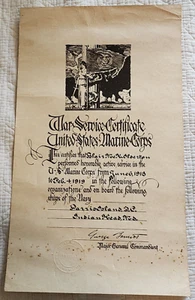 War-Service-Certificate
United States Marine Corps
This certifies that
performed honorably active service in the
U.S. Marine Corps from June 6, 1918
to Feb. 4 1919 in the following
organizations and on board the following
ships of the Navy
Parris Island, S.C.
Indian Head, Md.
George Barnett
Major General Commandant